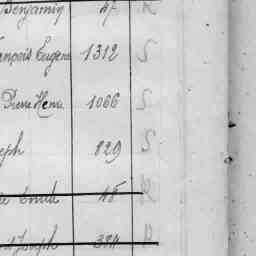 Benjamin 47
ançois Eugène 1312
Pierre Henri 1066
eph 829
Emile 48
Joseph 384